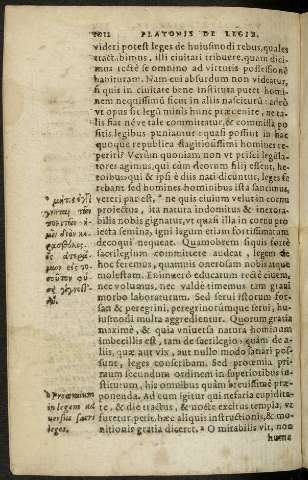 PLATONIS DE LEGIB.
videri potest leges de huiusmodi rebus, quales
tractabimus, illi ciuitati tribuere, quam dici-
mus rectè se omnino ad virtutis possessionē
habituram. Nam cui absurdum non videatur,
si quis in ciuitate bene instituta putet homi-
nem nequissimū sicut in aliis nascitur: adeò
vt opus sit legū minis hunc præuenire, ne ta-
lis fiat néve tale committatur, & commissa po
sitis legibus puniatur, quasi possint in hac
quoque republica flagitiosissimi homines re-
periri? Verùm quoniam non vt prisci legisla-
tores agimus, qui cùm deorum filij essent, he-
roibus, qui & ipsi è diis nati dicuntur, leges fe
rebant, sed homines hominibus ista sancimus,
vereri par est, * ne quis ciuium velut in cornu
proiectus, ita natura indomitus & inexora-
bilis nobis gignatur, vt quasi illa in cornu pro
iecta semina, igni legum etiam fortissimarum
decoqui nequeat. Quamobrem siquis fortè
sacrilegium committere audeat, legem de
hoc feremus, quamuis onerosam nobis atque
molestam. Enimuero educatum rectè ciuem,
nec volumus, nec valde timemus tam graui
morbo laboraturum. Sed serui istorum for-
san & peregrini, peregrinorúmque serui, hu-
iusmodi multa aggrediētur. Quorum gratia
maximè, & quia vniuersa natura hominum
imbecillis est, tam de sacrilegio quàm de a-
liis, quæ aut vix, aut nullo modo sanari pos-
sunt, leges conscribam. Sed proœmia pri-
mum secundum ordinem in superioribus in-
stitutum, his omnibus quàm breuissimè præ-
ponenda. Ad eum igitur qui nefaria cupidita-
te, & die tractus, & nocte excitus templa, vt
furetur, petit, hæc aliquis instructionis, & mo-
nitionis gratia diceret. a O mirabilis vir, non
huma
a Proœmium
in legem ad
uersus sacri
leges.